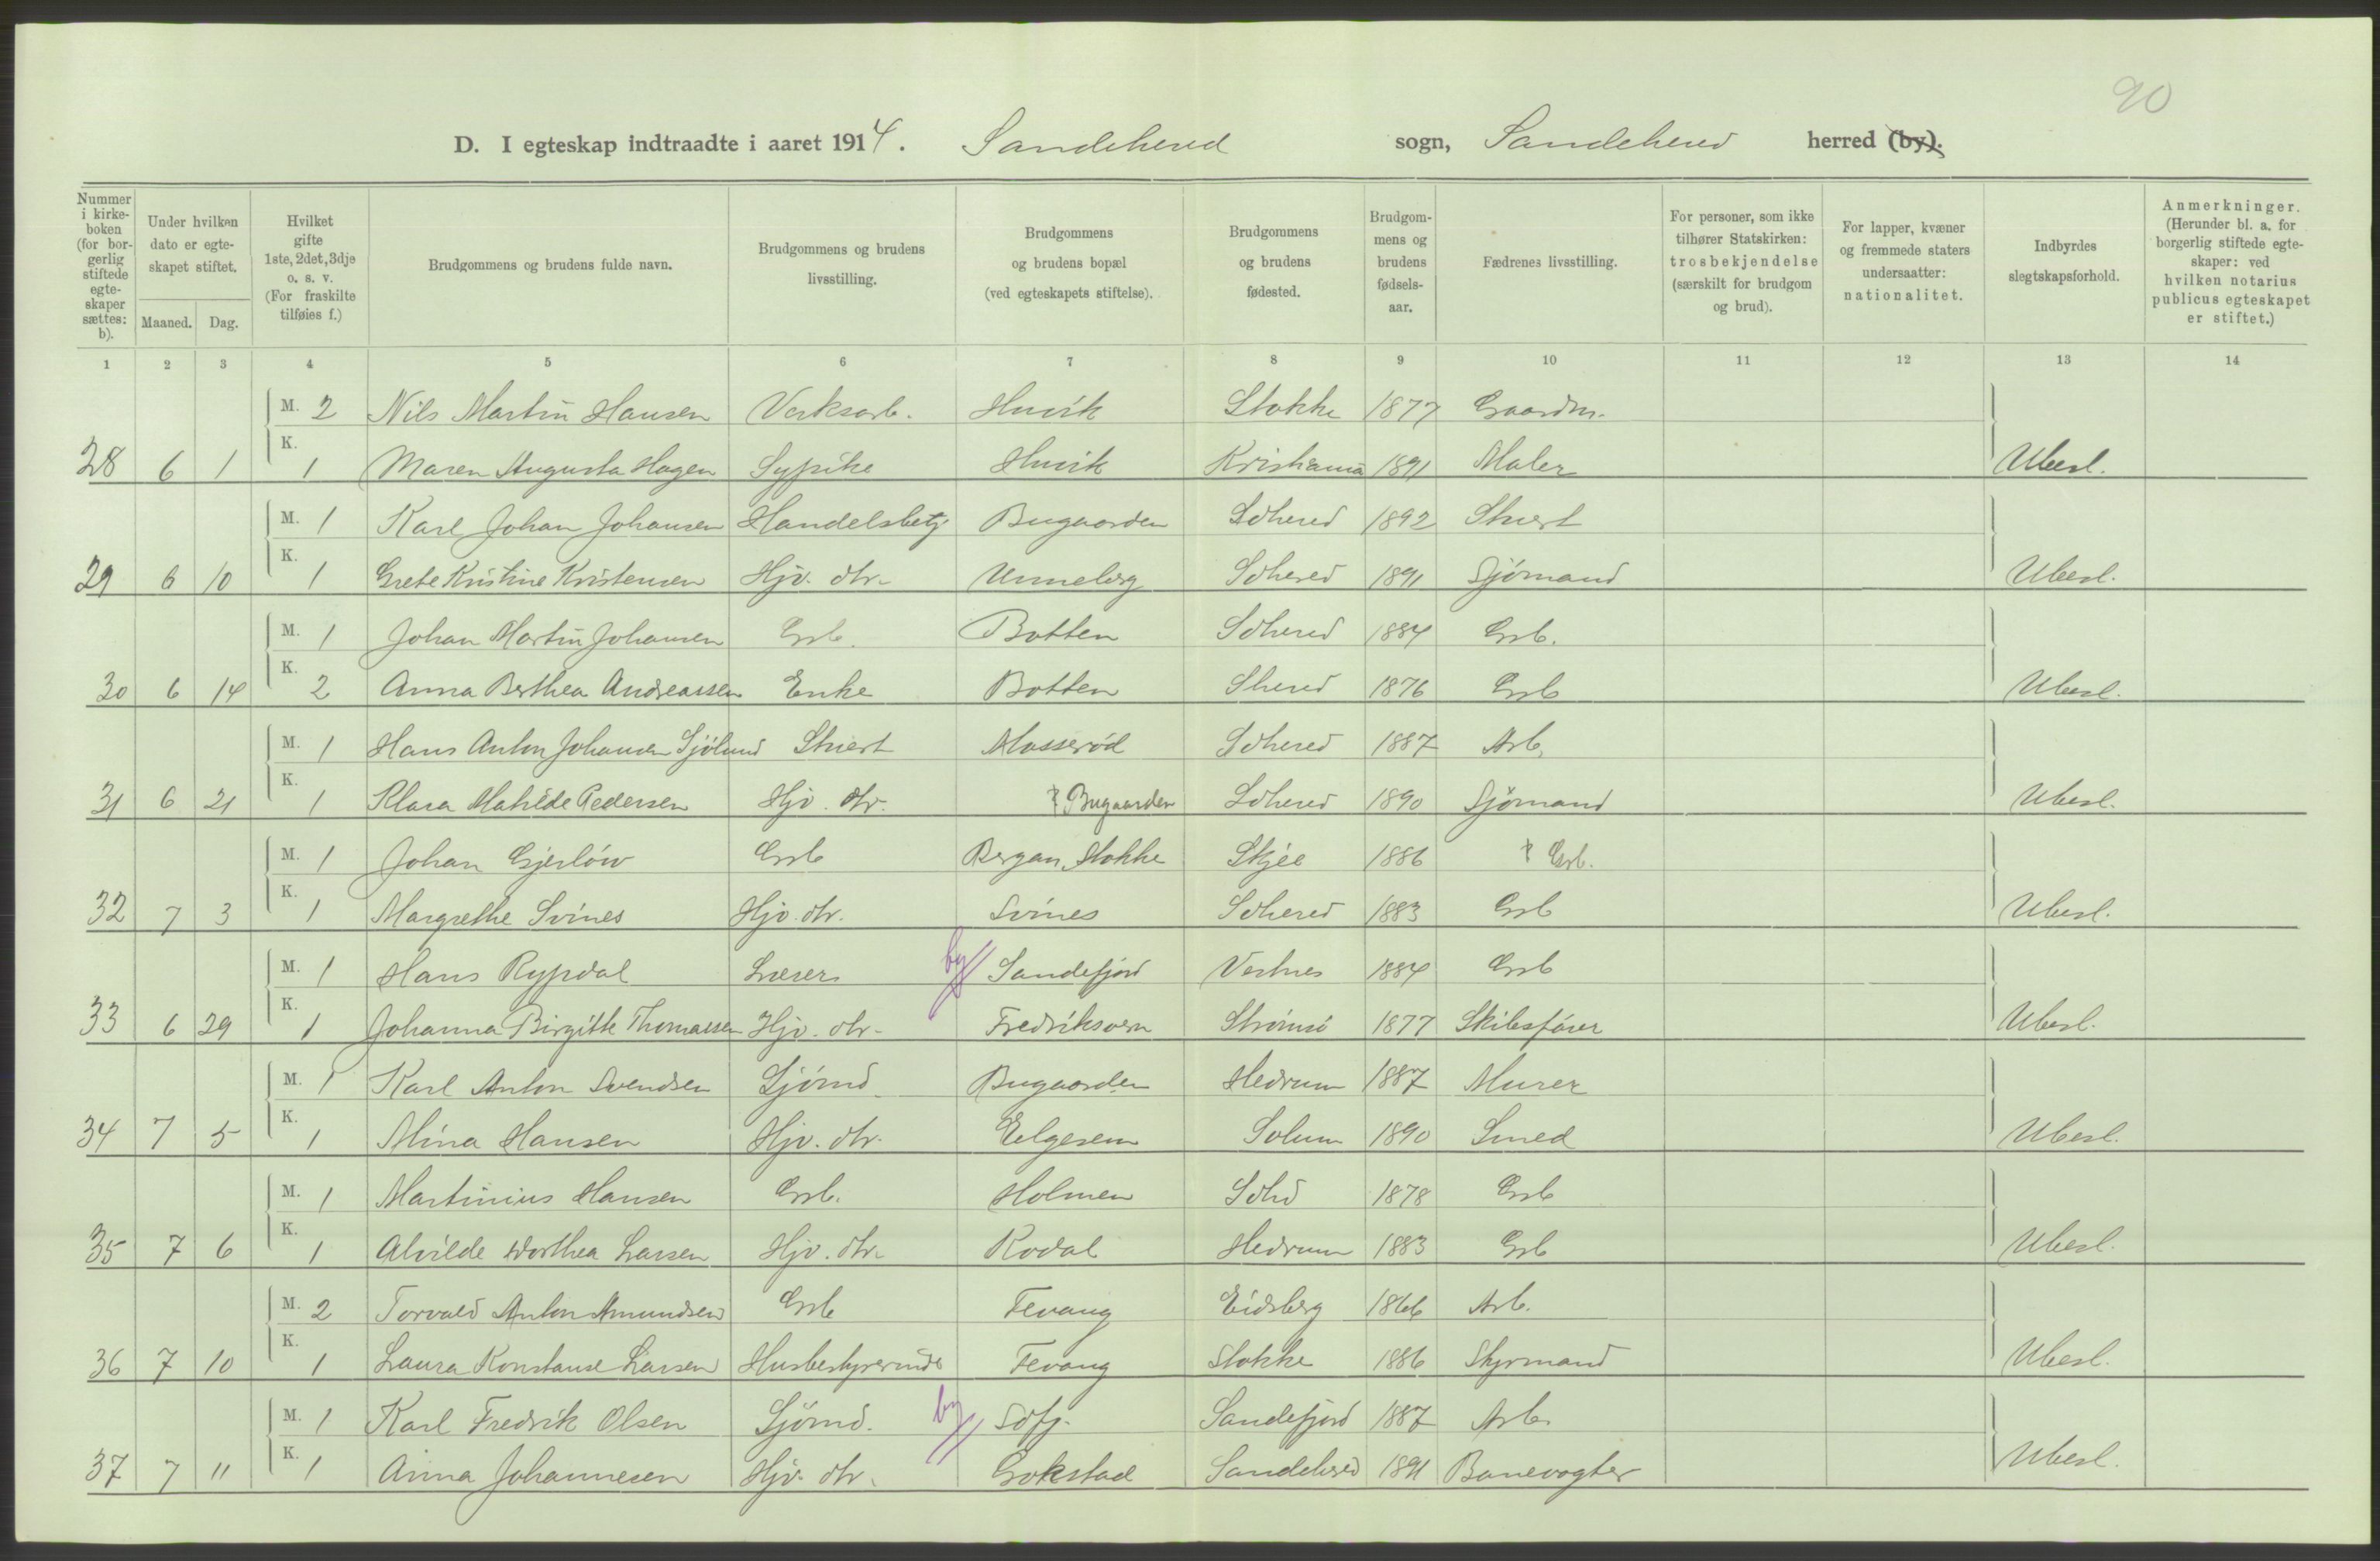 90
D. I egteskap indtraadte i aaret 1914. Sandeherred sogn, Sandeherred herred (by).
Nummer i kirkeboken (for borgerlig stiftede egteskaper sættes: b).
Under hvilken dato er egteskapet stiftet.
Maaned. Dag.
Hvilket gifte 1ste, 2det, 3dje o. s. v. (For fraskilte tilføies f.)
Brudgommens og brudens fulde navn.
Brudgommens og brudens livsstilling.
Brudgommens og brudens bopæl (ved egteskapets stiftelse).
Brudgommens og brudens fødested.
Brudgommens og brudens fødselsaar.
Fædrenes livsstilling.
For personer, som ikke tilhører Statskirken: trosbekjendelse (særskilt for brudgom og brud).
For lapper, kvæner og fremmede staters undersaatter: nationalitet.
Indbyrdes slegtskapsforhold.
Anmerkninger. (Herunder bl. a. for borgerlig stiftede egteskaper: ved hvilken notarius publicus egteskapet er stiftet.)
1 2 3 4 5 6 7 8 9 10 11 12 13 14
M. 2 Nils Martin Hansen Verksarb. Huvik Stokke 1877 Gaardbr.
28 6 1 K. 1 Maren Augusta Hagen Sypike Huvik Kristiania 1891 Maler Ubesl.
M. 1 Karl Johan Johansen Handelsbetj Bugaarden Sdherred 1892 Stuert
29 6 10 K. 1 Grete Kristine Kristensen Hjv. dtr. Unneberg Sdherred 1891 Sjömand Ubesl.
M. 1 Johan Martin Johansen Grb. Botten Sdherred 1884 Grb.
30 6 14 K. 2 Anna Berthea Andreassen Enke Botten Sherred 1876 Grb Ubesl.
M. 1 Hans Anton Johansen Sjölund Stuert Mosserød Sdherred 1887 Arb.
31 6 21 K. 1 Klara Mahilde Pedersen Hjv. dtr. ? Bugaarden Sdherred 1890 Sjömand Ubesl.
M. 1 Johan Gjerlöw Grb Bergan, Stokke Skjée 1886 ? Grb.
32 7 3 K. 1 Margrethe Svines Hjv. dtr. Svines Sdherred 1883 Grb Ubesl.
M. 1 Hans Rypdal Lærer by // Sandefjord Vestnes 1884 Grb
33 6 29 K. 1 Johanna Birgitte Thomassen Hjv. dtr. Fredriksvern Strömsö 1877 Skibsfører Ubesl.
M. 1 Karl Anton Svendsen Sjömd. Bugaarden Hedrum 1887 Murer
34 7 5 K. 1 Mina Hansen Hjv. dtr. Eelgesem Solum 1890 Smed Ubesl.
M. 1 Martinius Hansen Grb. Holmen Sdhd 1878 Grb
35 7 6 K. 1 Alvilde Dorthea Larsen Hjv. dtr. Kodal Hedrum 1883 Grb Ubesl.
M. 2 Torvald Anton Amundsen Grb Fevang Eidsberg 1866 Arb.
36 7 10 K. 1 Laura Konstanse Larsen Husbestyrerinde Fevang Stokke 1886 Styrmand Ubesl.
M. 1 Karl Fredrik Olsen Sjömd. by // Sdfj. Sandefjord 1887 Arb.
37 7 11 K. 1 Anna Johannesen Hjv. dtr. Gokstad Sandeherred 1891 Banevogter Ubesl.